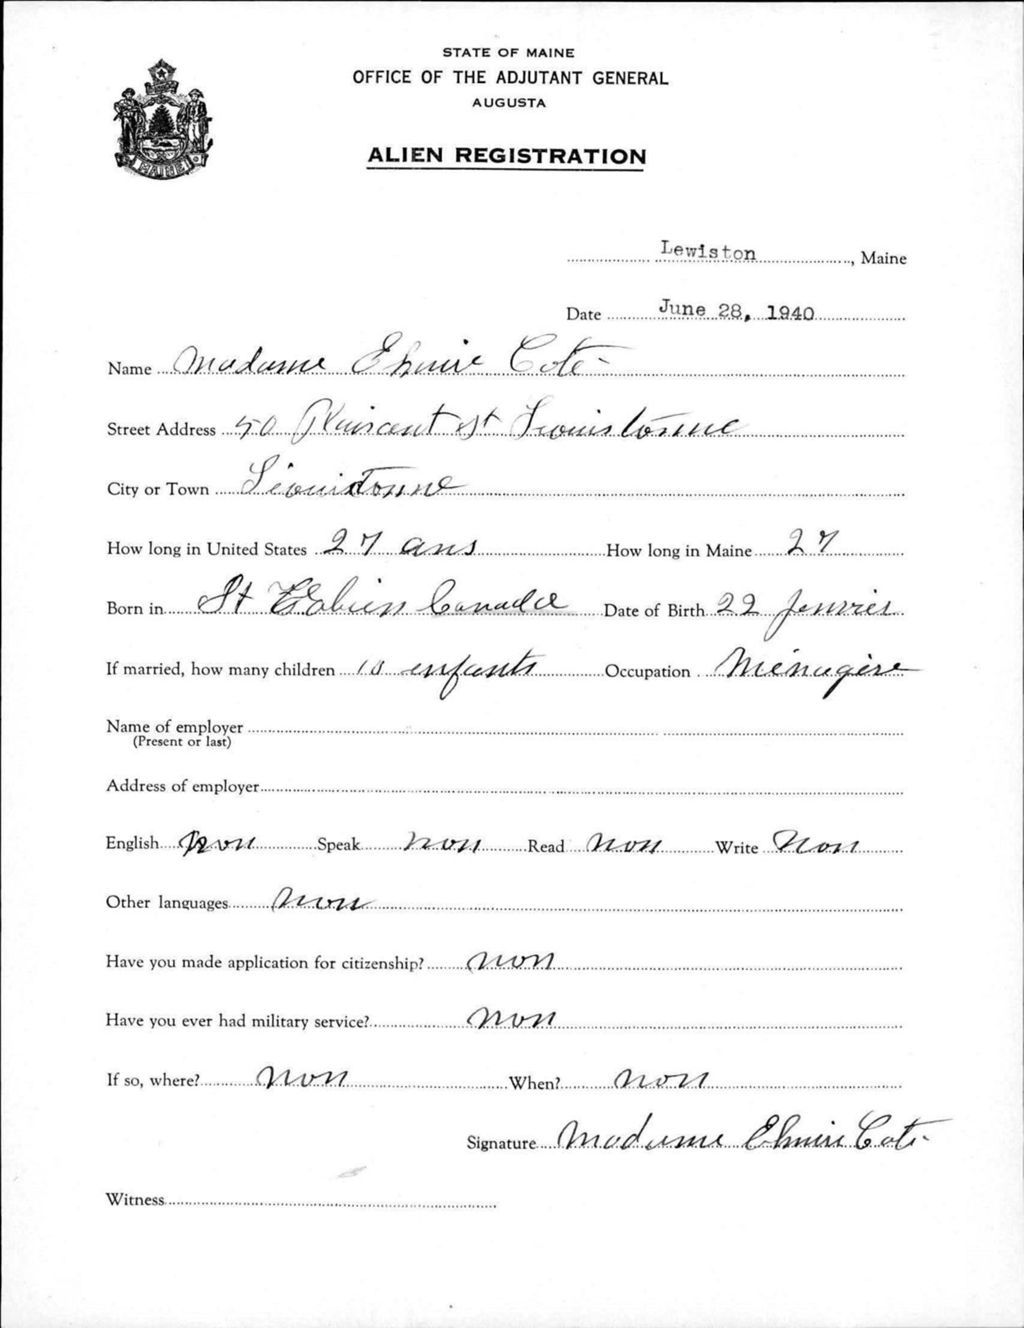 STATE OF MAINE
OFFICE OF THE ADJUTANT GENERAL
AUGUSTA
ALIEN REGISTRATION
MAINE
Lewiston, Maine
Date June 28, 1940
Name Madame Elmire Coté
Street Address 50 st
City or Town
How long in United States 27 ans How long in Maine 27
Born in St Canada Date of Birth 22 Janvier
If married, how many children 10 enfants Occupation Ménagère
Name of employer
(Present or last)
Address of employer
English non Speak non Read non Write Non
Other languages Non
Have you made application for citizenship? non
Have you ever had military service? Non
If so, where? Non When? Non
Signature Madame Elmire Coté
Witness